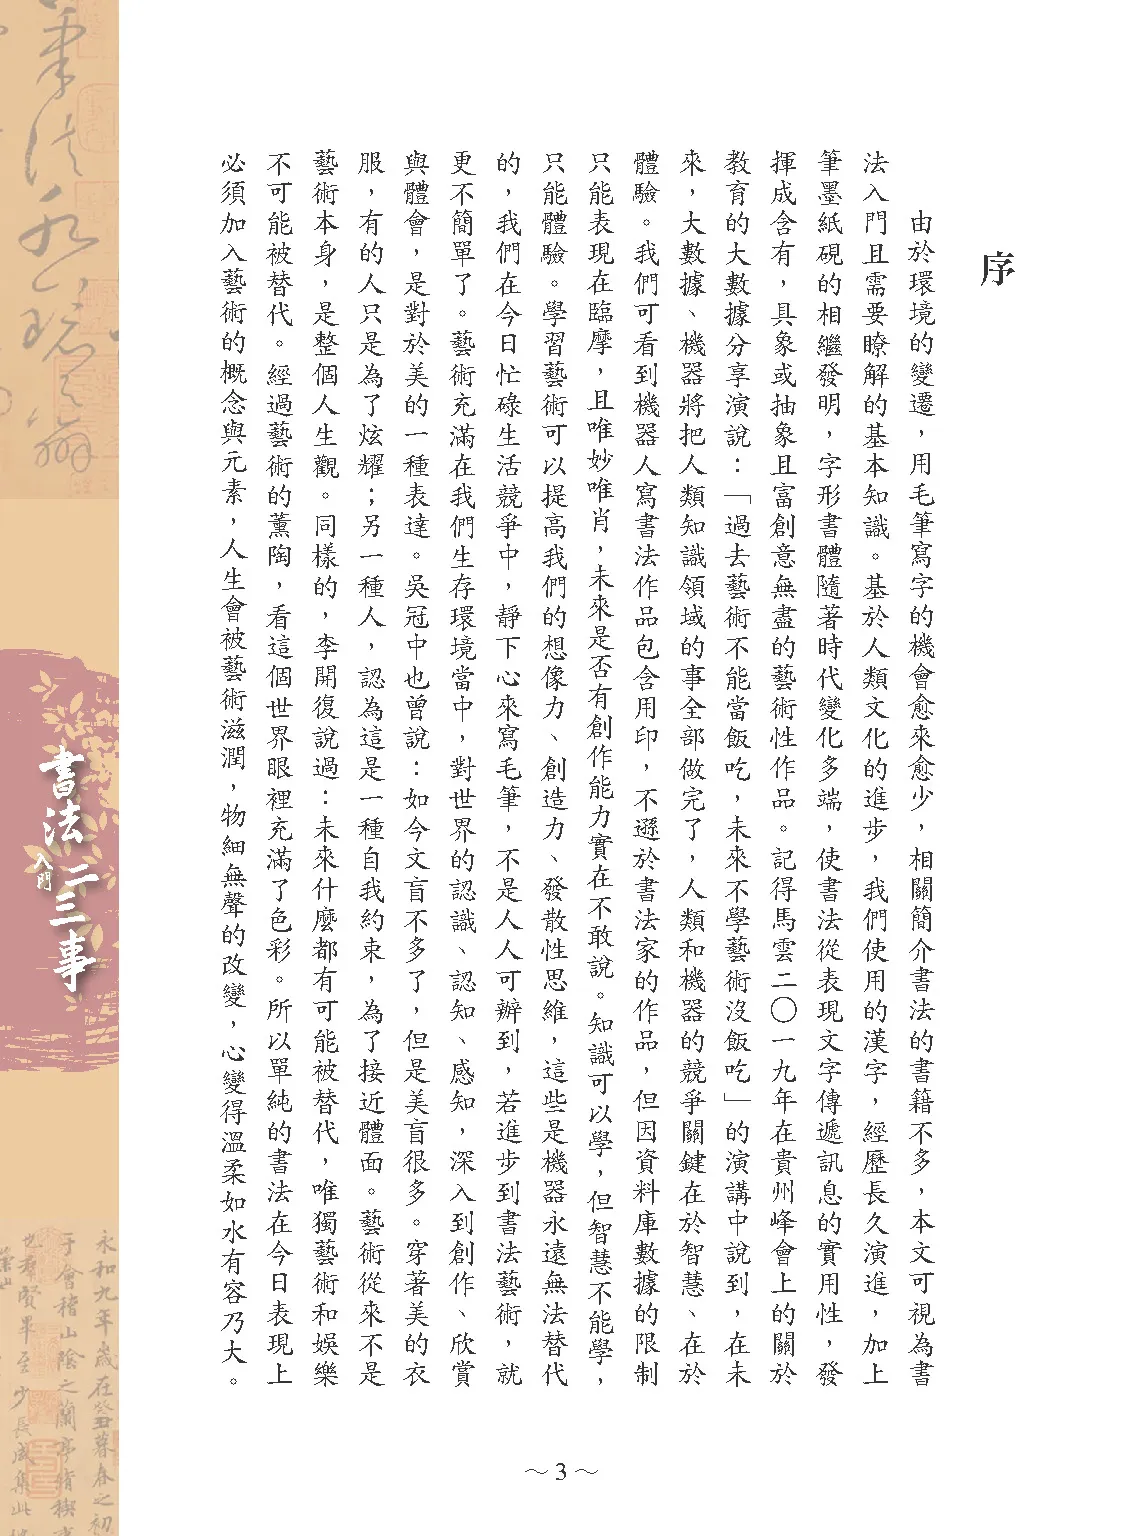 序
由於環境的變遷，用毛筆寫字的機會愈來愈少，相關簡介書法的書籍不多，本文可視為書
法入門且需要瞭解的基本知識。基於人類文化的進步，我們使用的漢字，經歷長久演進，加上
筆墨紙硯的相繼發明，字形書體隨著時代變化多端，使書法從表現文字傳遞訊息的實用性，發
揮成含有，具象或抽象且富創意無盡的藝術性作品。記得馬雲二〇一九年在貴州峰會上的關於
教育的大數據分享演說：「過去藝術不能當飯吃，未來不學藝術沒飯吃」的演講中說到，在未
來，大數據、機器將把人類知識領域的事全部做完了，人類和機器的競爭關鍵在於智慧、在於
體驗。我們可看到機器人寫書法作品包含用印，不遜於書法家的作品，但因資料庫數據的限制
只能表現在臨摩，且唯妙唯肖，未來是否有創作能力實在不敢說。知識可以學，但智慧不能學，
只能體驗。學習藝術可以提高我們的想像力、創造力、發散性思維，這些是機器永遠無法替代
的，我們在今日忙碌生活競爭中，靜下心來寫毛筆，不是人人可辦到，若進步到書法藝術，就
更不簡單了。藝術充滿在我們生存環境當中，對世界的認識、認知、感知，深入到創作、欣賞
與體會，是對於美的一種表達。吳冠中也曾說：如今文盲不多了，但是美盲很多。穿著美的衣
服，有的人只是為了炫耀；另一種人，認為這是一種自我約束，為了接近體面。藝術從來不是
藝術本身，是整個人生觀。同樣的，李開復說過：未來什麼都有可能被替代，唯獨藝術和娛樂
不可能被替代。經過藝術的薰陶，看這個世界眼裡充滿了色彩。所以單純的書法在今日表現上
必須加入藝術的概念與元素，人生會被藝術滋潤，物細無聲的改變，心變得溫柔如水有容乃大。
書法入門二三事
永和九年歲在癸丑暮春之初
于會稽山陰之蘭亭脩禊事
也羣賢畢至少長咸集此地
～3～